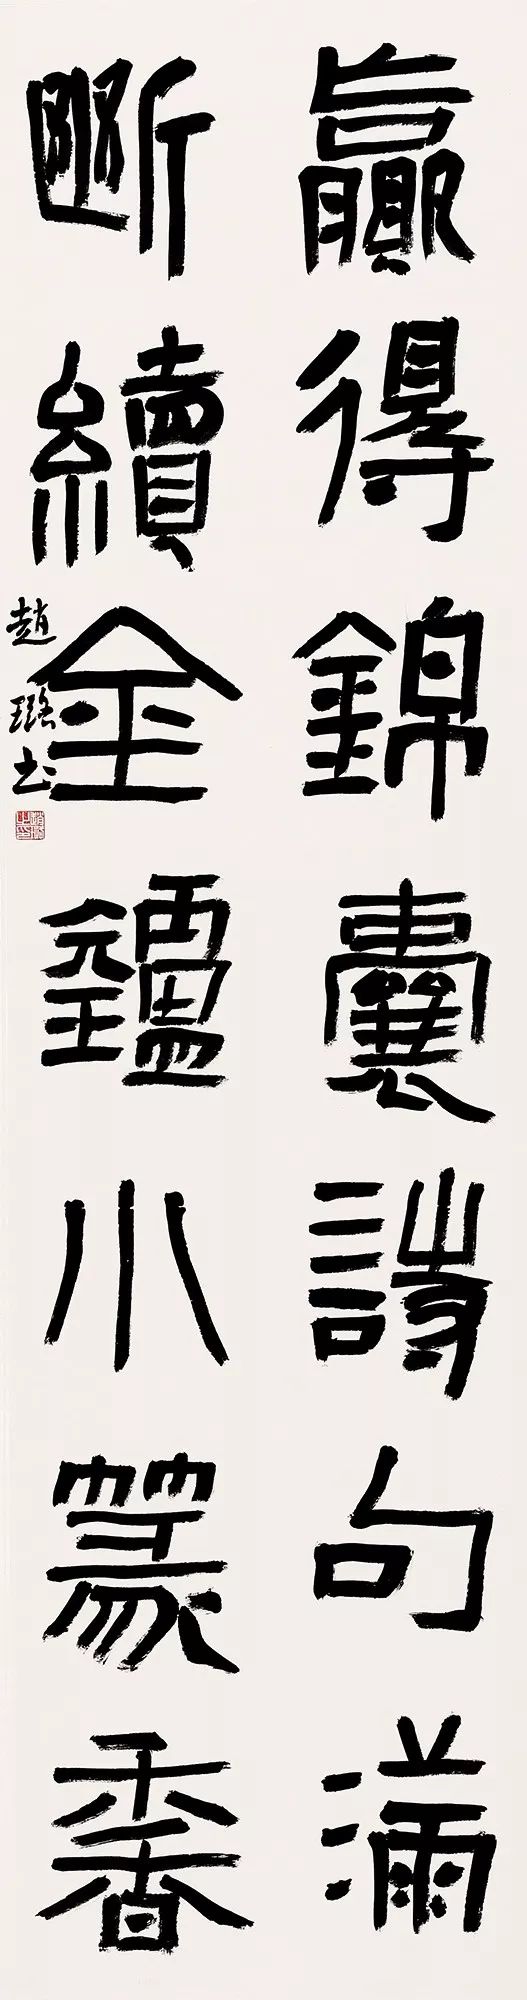 贏得錦囊詩句滿
斷續金鑪小篆香
趙璐书